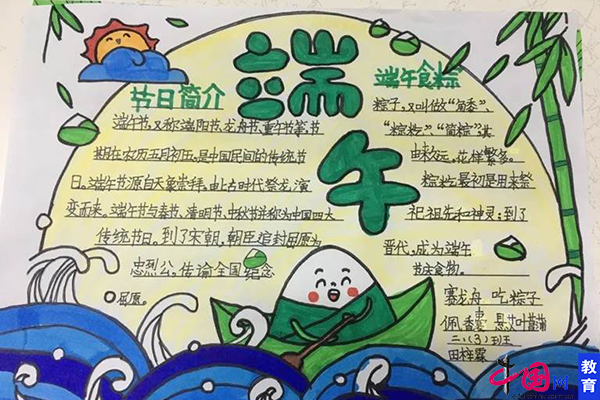 端午
节日简介
端午节,又称端阳节、龙舟节、重午节等,节
期在农历五月初五,是中国民间的传统节
日。端午节源自天象崇拜,由上古时代祭龙演
变而来。端午节与春节、清明节、中秋节并称为中国四大
传统节日。到了宋朝,朝臣追封屈原为
忠烈公。传谕全国纪念
屈原。
端午食粽
粽子,又叫做“角黍”、
“粽粒”、“筒粽”,其
由来久远,花样繁多。
粽粒最初是用来祭
祀祖先和神灵;到了
晋代,成为端午
节庆食物。
赛龙舟 吃粽子
佩香囊 悬艾叶菖蒲
二(3)班
中国网
教育